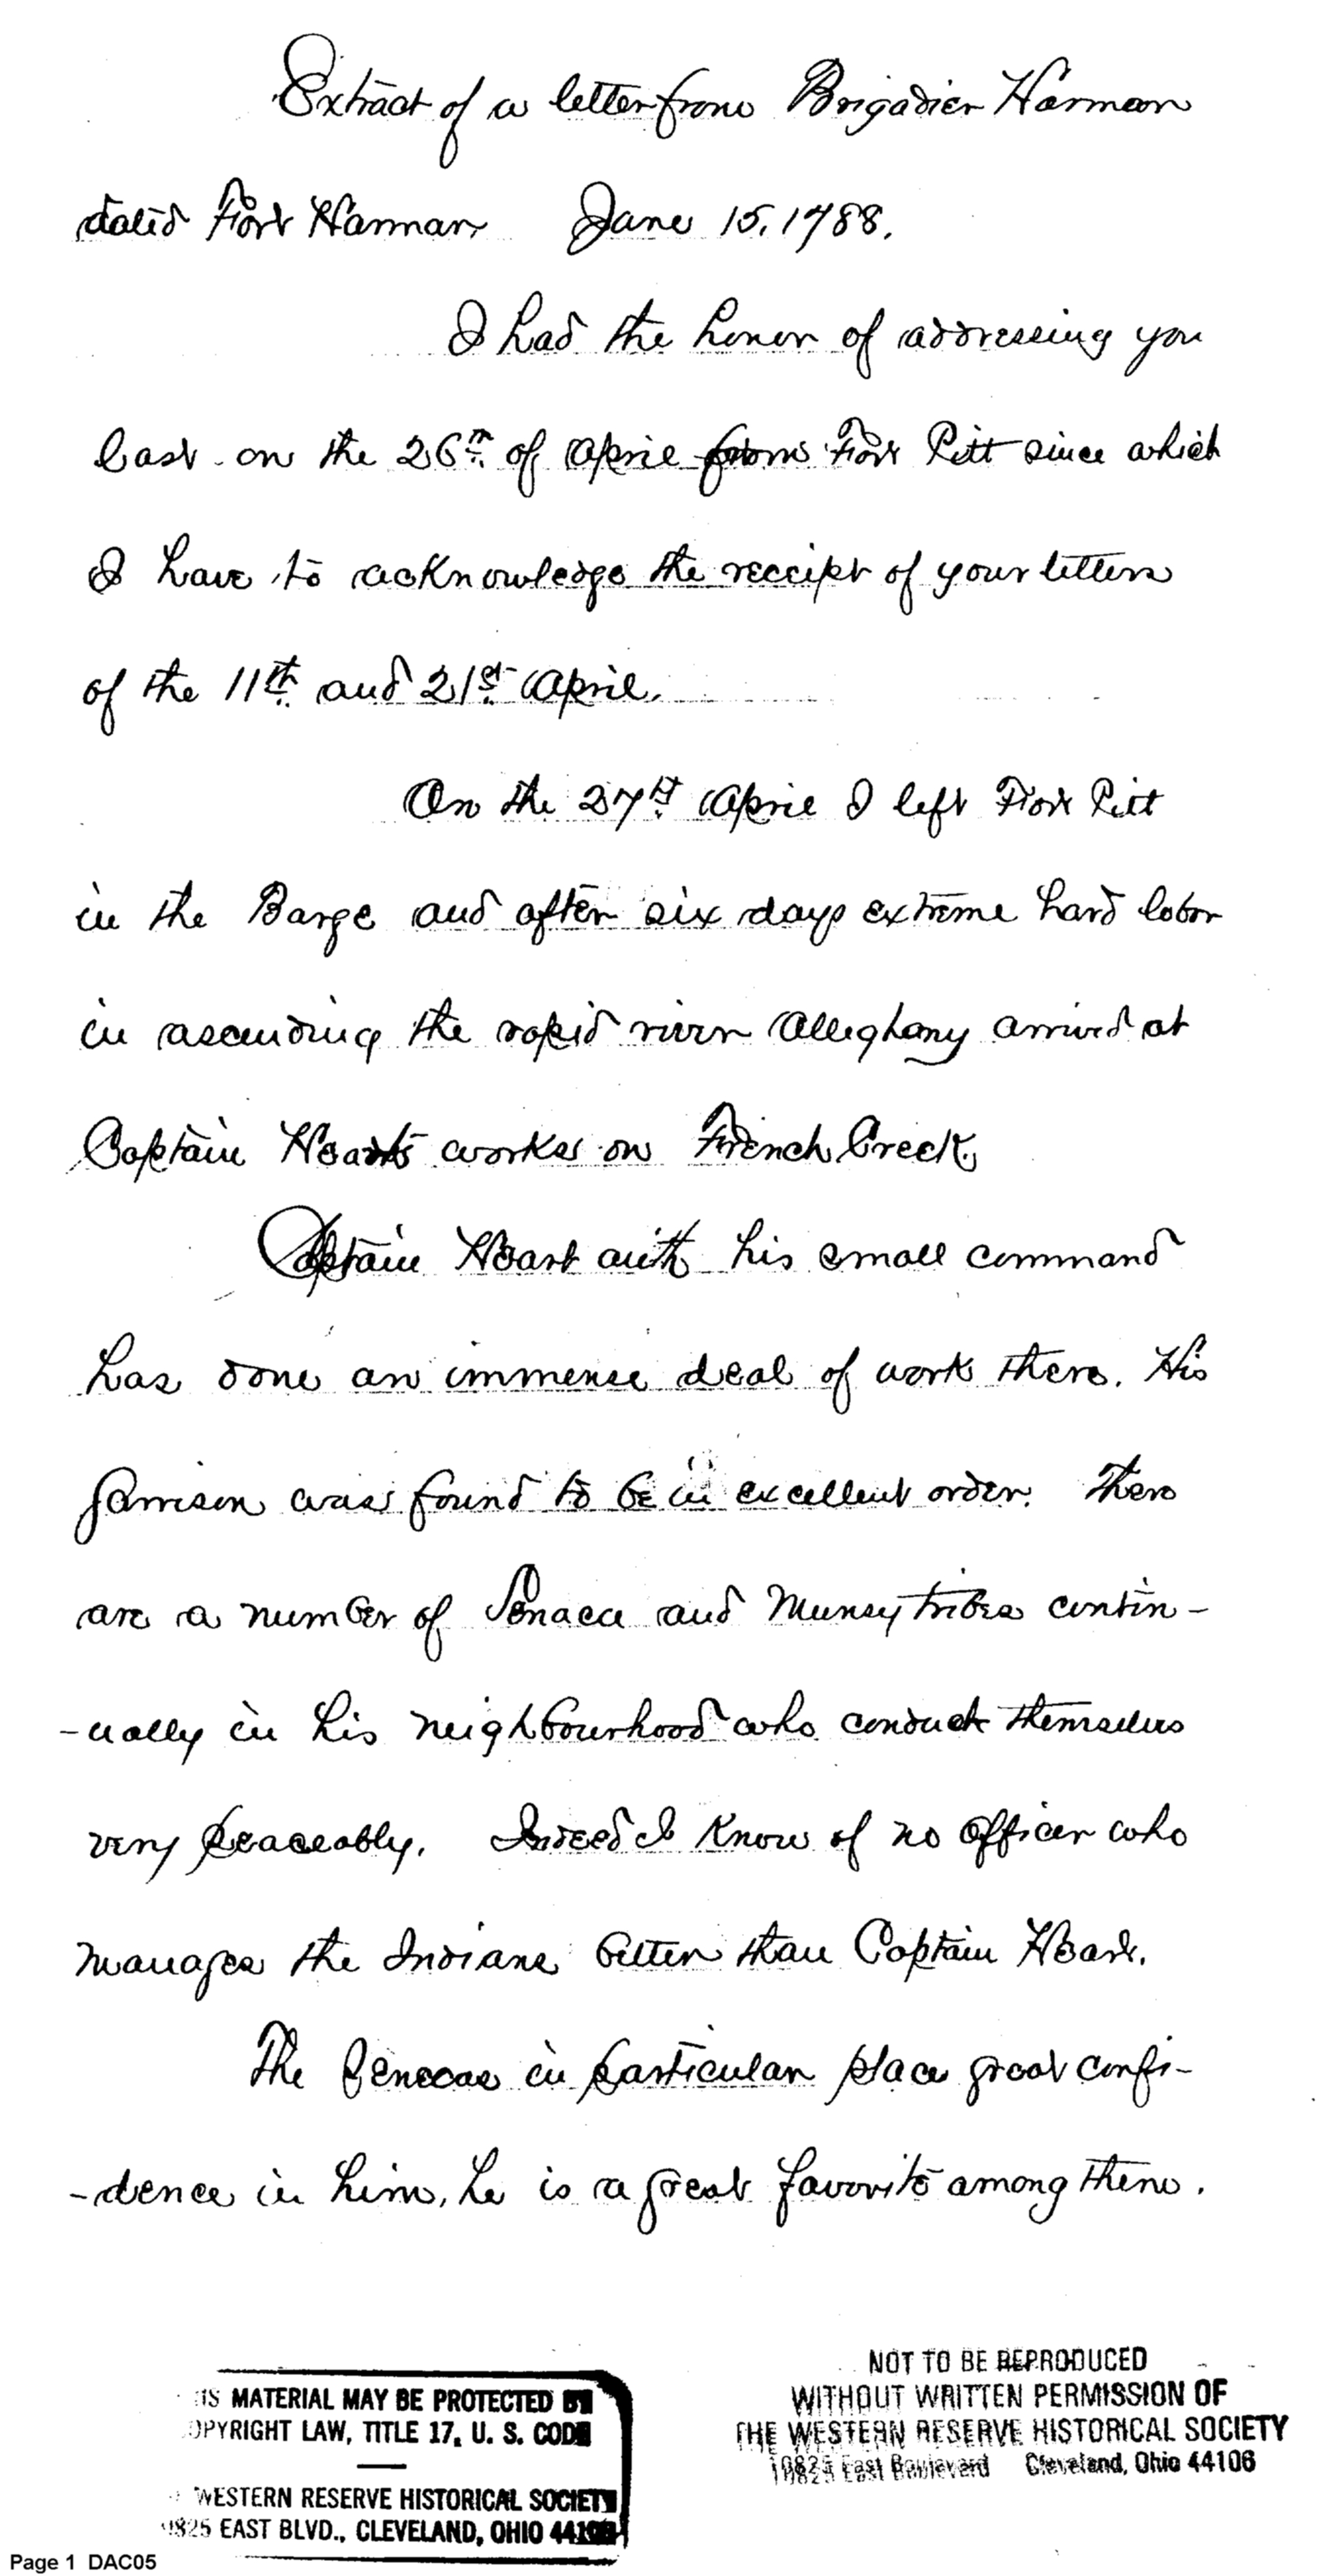 Extract of a letter from Brigadier Harman
dated Fort Harman June 15, 1788.
I had the honor of addressing you
last on the 26th of April from Fort Pitt since which
I have to acknowledge the receipt of your letters
of the 11th and 21st April.
On the 27th April I left Fort Pitt
in the Barge and after six days extreme hard labor
in ascending the rapid river Alleghany arrived at
Captain Hearts works on French Creek
Captain Heart with his small command
has done an immense deal of work there. His
garrison was found to be in excellent order. There
are a number of Senaca and Munsey tribes contin-
-ually in his neighbourhood who conduct themselves
very peaceably. Indeed I know of no officer who
manages the Indians better than Captain Heart.
The Senecas in particular place great confi-
-dence in him, he is a great favorite among them.
NOT TO BE REPRODUCED
WITHOUT WRITTEN PERMISSION OF
THE WESTERN RESERVE HISTORICAL SOCIETY
10825 East Boulevard Cleveland, Ohio 44106
IS MATERIAL MAY BE PROTECTED BY
OPYRIGHT LAW, TITLE 17, U. S. CODE
WESTERN RESERVE HISTORICAL SOCIETY
10825 EAST BLVD., CLEVELAND, OHIO 44106
Page 1 DAC05